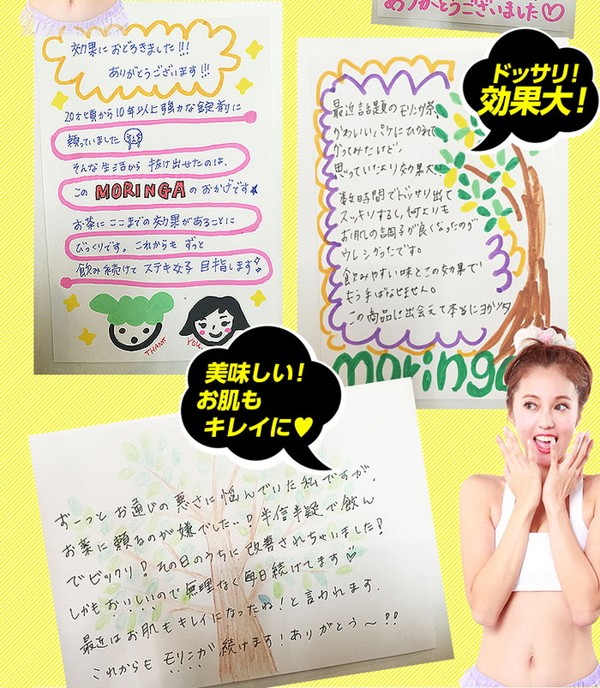 ありがとうございました♡
効果におどろきました!!!
ありがとうございます!!!
20才頃から10年以上強力な錠剤に
頼っていました
そんな生活から抜け出せたのは、
このMORINGAのおかげです★
お茶にここまでの効果があることに
びっくりです。これからもずっと
飲み続けてステキ女子目指します!
THANK YOU
ドッサリ!
効果大!
最近話題のモリンガ茶、
かわいいパケにひかれて
かってみたけど、
思っていたより効果大…
短時間でドッサリ出て
スッキリするし、何よりも
お肌の調子が良くなったのが
ウレシかったです。
飲みやすい味とこの効果で
もう手ばなせません。
この商品に出会えて本当にヨカッタ
moringa
美味しい!
お肌も
キレイに♥
ずーっとお通じの悪さに悩んでいた私ですが、
お薬に頼るのが嫌でした…!半信半疑で飲ん
でビックリ!その日のうちに改善されちゃいました!
しかもおいしいので無理なく毎日続けてます♡
最近はお肌もキレイになったね!と言われます。
これからもモリンガ続けます!ありがとう〜!!